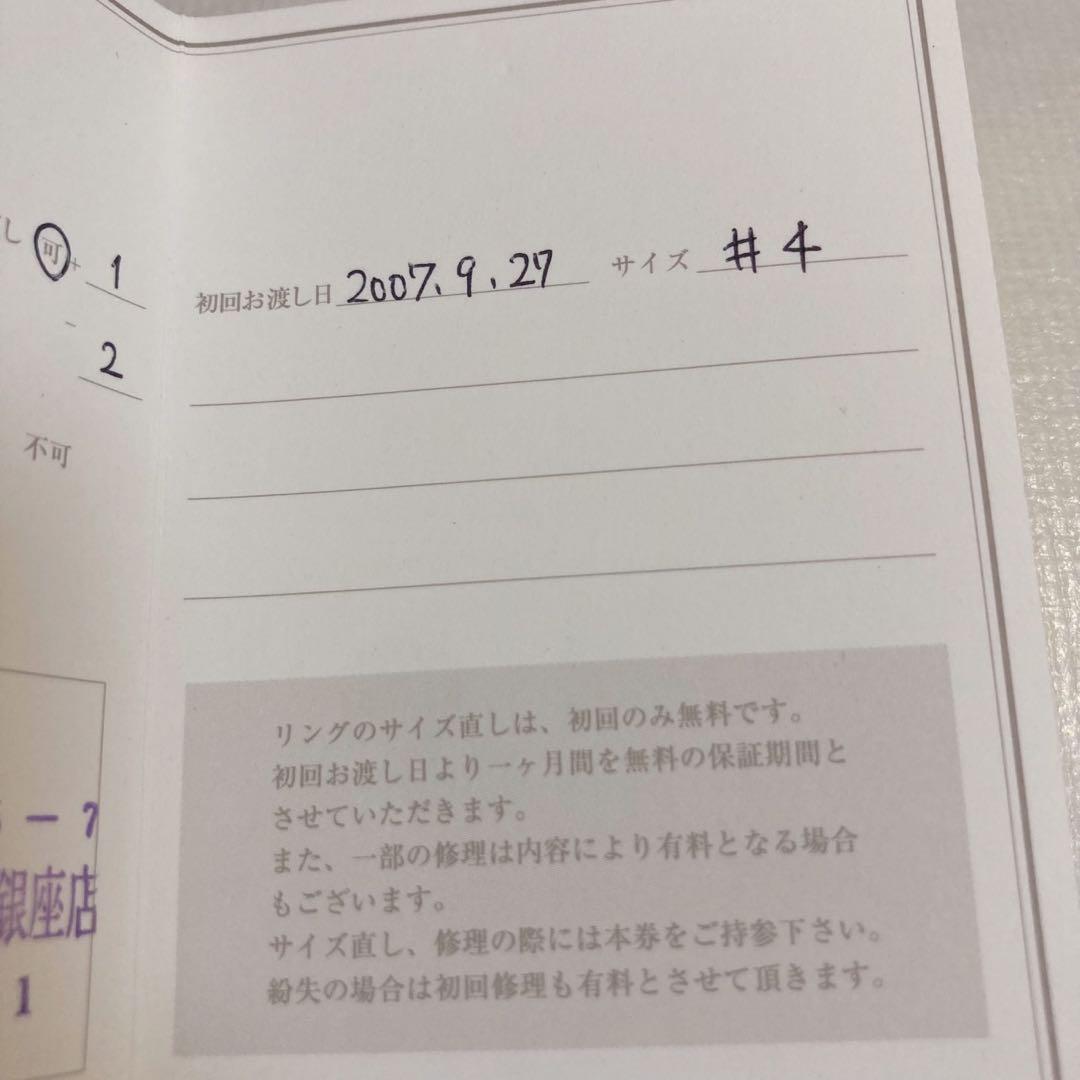 し 可 + 1
- 2
不可
初回お渡し日 2007.9.27 サイズ #4
リングのサイズ直しは、初回のみ無料です。
初回お渡し日より一ヶ月間を無料の保証期間と
させていただきます。
また、一部の修理は内容により有料となる場合
もございます。
サイズ直し、修理の際には本券をご持参下さい。
紛失の場合は初回修理も有料とさせて頂きます。
銀座店
1